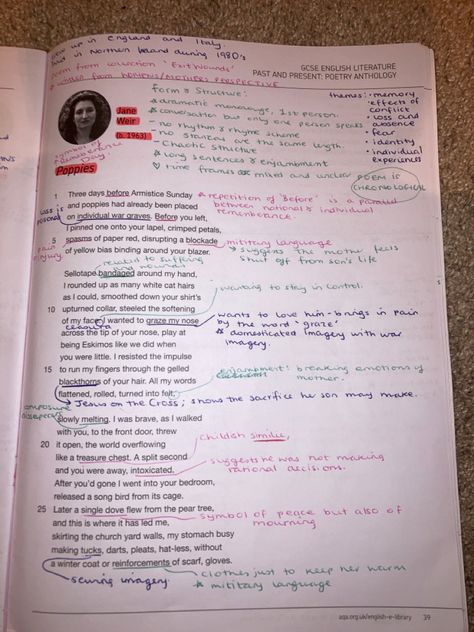 grew up in England and Italy
lived in Northern Ireland during 1980's
poem from collection 'Exit Wounds'
* written from WOMENS/MOTHERS PERSPECTIVE
GCSE ENGLISH LITERATURE
PAST AND PRESENT: POETRY ANTHOLOGY
Jane
Weir
(b. 1963)
symbol of
remembrance
Day.
Poppies
Form & Structure:
* dramatic monologue, 1st person.
* conversation but only one person speaks
- no rhythm & rhyme scheme
- no stanzas are the same length.
- Chaotic structure
* long sentences & enjambment
time frames are mixed and unclear
POEM IS
CHRONOLOGICAL
themes: • memory
• effects of
conflict
• loss and
absence
• fear
• identity
• individual
experiences
1 Three days before Armistice Sunday
* repetition of 'before' is a parallel
and poppies had already been placed
between national & individual
loss is
personal
on individual war graves. Before you left,
rememberance.
I pinned one onto your lapel, crimped petals,
5 spasms of paper red, disrupting a blockade
military language
pain
injury.
of yellow bias binding around your blazer.
suggests the mother feels
shut off from son's life
related to suffering
and wounds
Sellotape bandaged around my hand,
I rounded up as many white cat hairs
wanting to stay in control.
as I could, smoothed down your shirt's
10 upturned collar, steeled the softening
of my face. I wanted to graze my nose
wants to love him - brings in pain
by the word 'graze'
caesura
across the tip of your nose, play at
* domesticated imagery with war
imagery.
being Eskimos like we did when
you were little. I resisted the impulse
15 to run my fingers through the gelled
enjambment: breaking emotions of
mother.
blackthorns of your hair. All my words
flattened, rolled, turned into felt,
Jesus on the Cross; shows the sacrifice he son may make.
composure
disappears
slowly melting. I was brave, as I walked
with you, to the front door, threw
20 it open, the world overflowing
childish simile,
like a treasure chest. A split second
and you were away, intoxicated.
suggests he was not making
rational decisions.
After you'd gone I went into your bedroom,
released a song bird from its cage.
25 Later a single dove flew from the pear tree,
symbol of peace but also of
mourning
and this is where it has led me,
skirting the church yard walls, my stomach busy
making tucks, darts, pleats, hat-less, without
a winter coat or reinforcements of scarf, gloves.
sewing imagery.
clothes just to keep her warm
* military language
aqa.org.uk/english-e-library 39